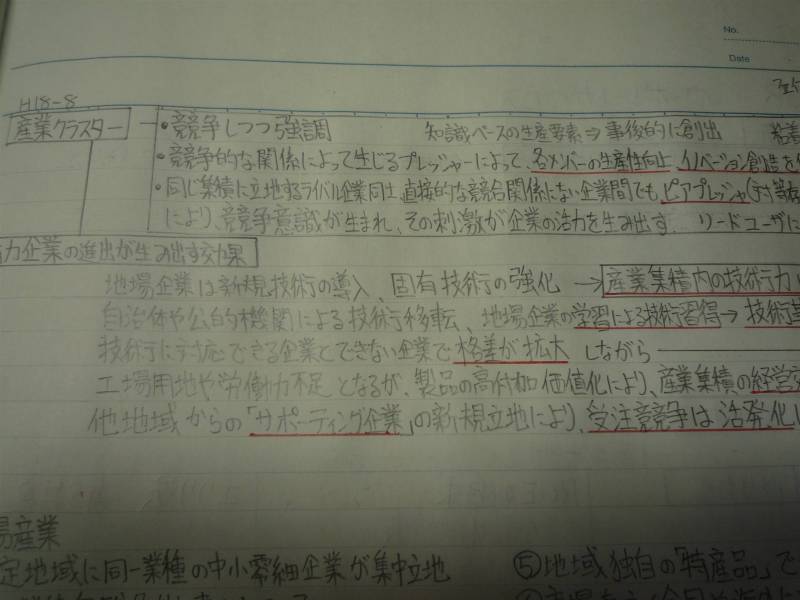 No.
Date
H18-8
産業クラスター
・競争しつつ強調 知識ベースの生産要素⇒事後的に創出 粘着
・競争的な関係によって生じるプレッシャーによって、各メンバーの生産性向上、イノベーション創造を
・同じ集積に立地するライバル企業同士、直接的な競合関係にない企業間でもピアプレッシャ
により、競争意識が生まれ、その刺激が企業の活力を生み出す。リードユーザに
力企業の進出が生み出す効果
地場企業は新規技術の導入、固有技術の強化 →産業集積内の技術力
自治体や公的機関による技術移転、地場企業の学習による技術習得→技術
技術に対応できる企業とできない企業で格差が拡大 しながら
工場用地や労働力不足となるが、製品の高付加価値化により、産業集積の経営
他地域からの「サポーティング企業」の新規立地により、受注競争は活発化
場産業
定地域に同一業種の中小零細企業が集中立地 ⑤地域独自の「特産品」で